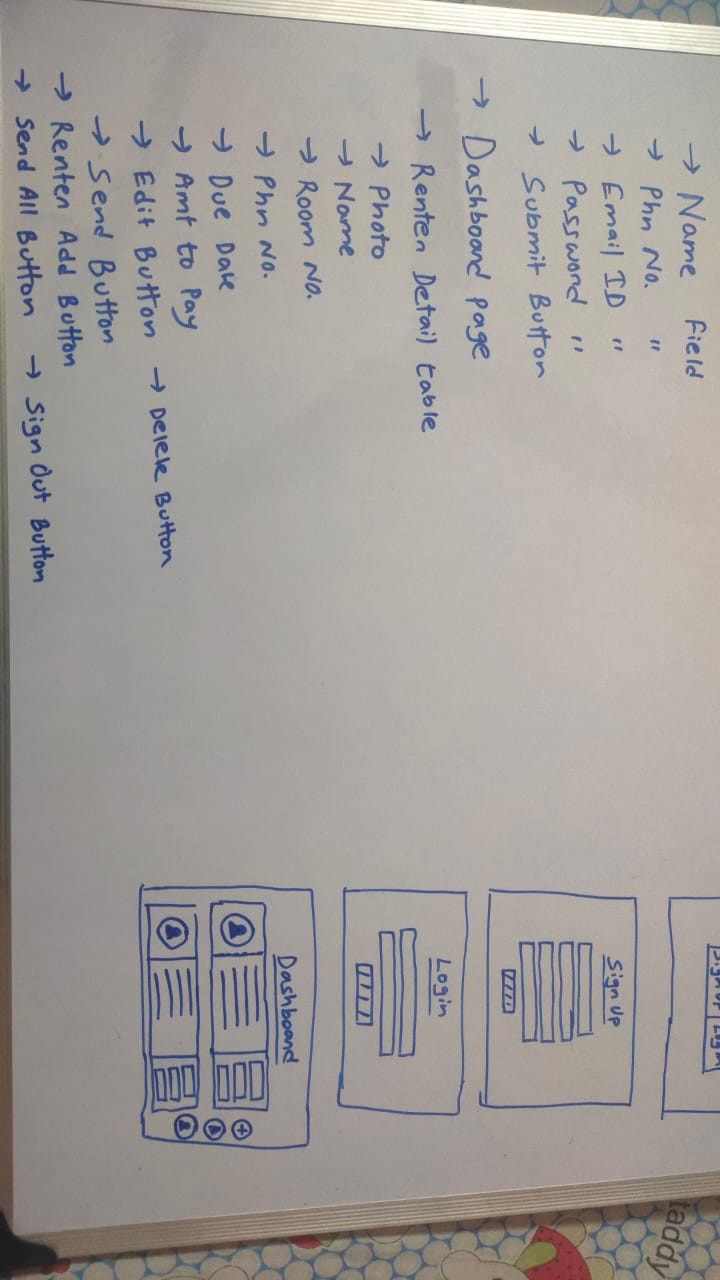 → Name Field
→ Phn No. "
→ Email ID "
→ Password "
→ Submit Button
→ Dashboard page
→ Renter Detail table
→ Photo
→ Name
→ Room No.
→ Phn No.
→ Due Date
→ Amt to Pay
→ Edit Button → Delete Button
→ Send Button
→ Renter Add Button
→ Send All Button → Sign Out Button
Sign Up Login
Sign Up
Login
Dashboard
taddy